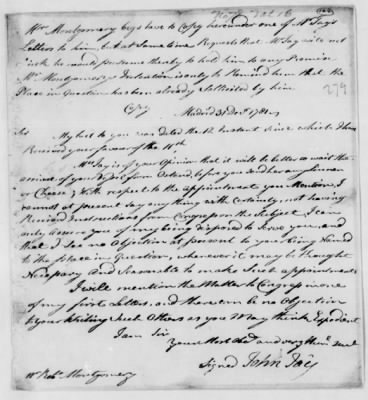 Mr Montgomery begs leave to Copy hereunder one of Mr Jay's
Letters to him, but at Same time Requests that Mr Jay will not
think he would presume thereby to hold him to any Promise
Mr Montgomery's Inclination is only to Remind him that the
Place in Question has been already Sollicited by him
279
Copy Madrid 31 Decr 1781
Sir My last to you was dated the Instant Since which I have
Received your favour of the 11th.
Mrs Jay is of your Opinion that it will be better to wait the
arrival of your Vessel from Ostend, before you Send her any Linnen
or Cheese; With respect to the appointment you Mention, I
cannot at present Say any thing with Certainty, not having
Received Instructions from Congress on the Subject, I can
only assure you of my being disposed to Serve you, and
that I See no Objection at present to your being Named
to the place in Question, whenever it may be thought
Necessary and Seasonable to make Such appointments
I will mention the Matter to Congress in one
of my first Letters, and there can be no Objection
to your Writing Such Others as you May think Expedient
I am Sir
Your Most Obed and very
Signed John Jay
Mr Robt. Montgomery